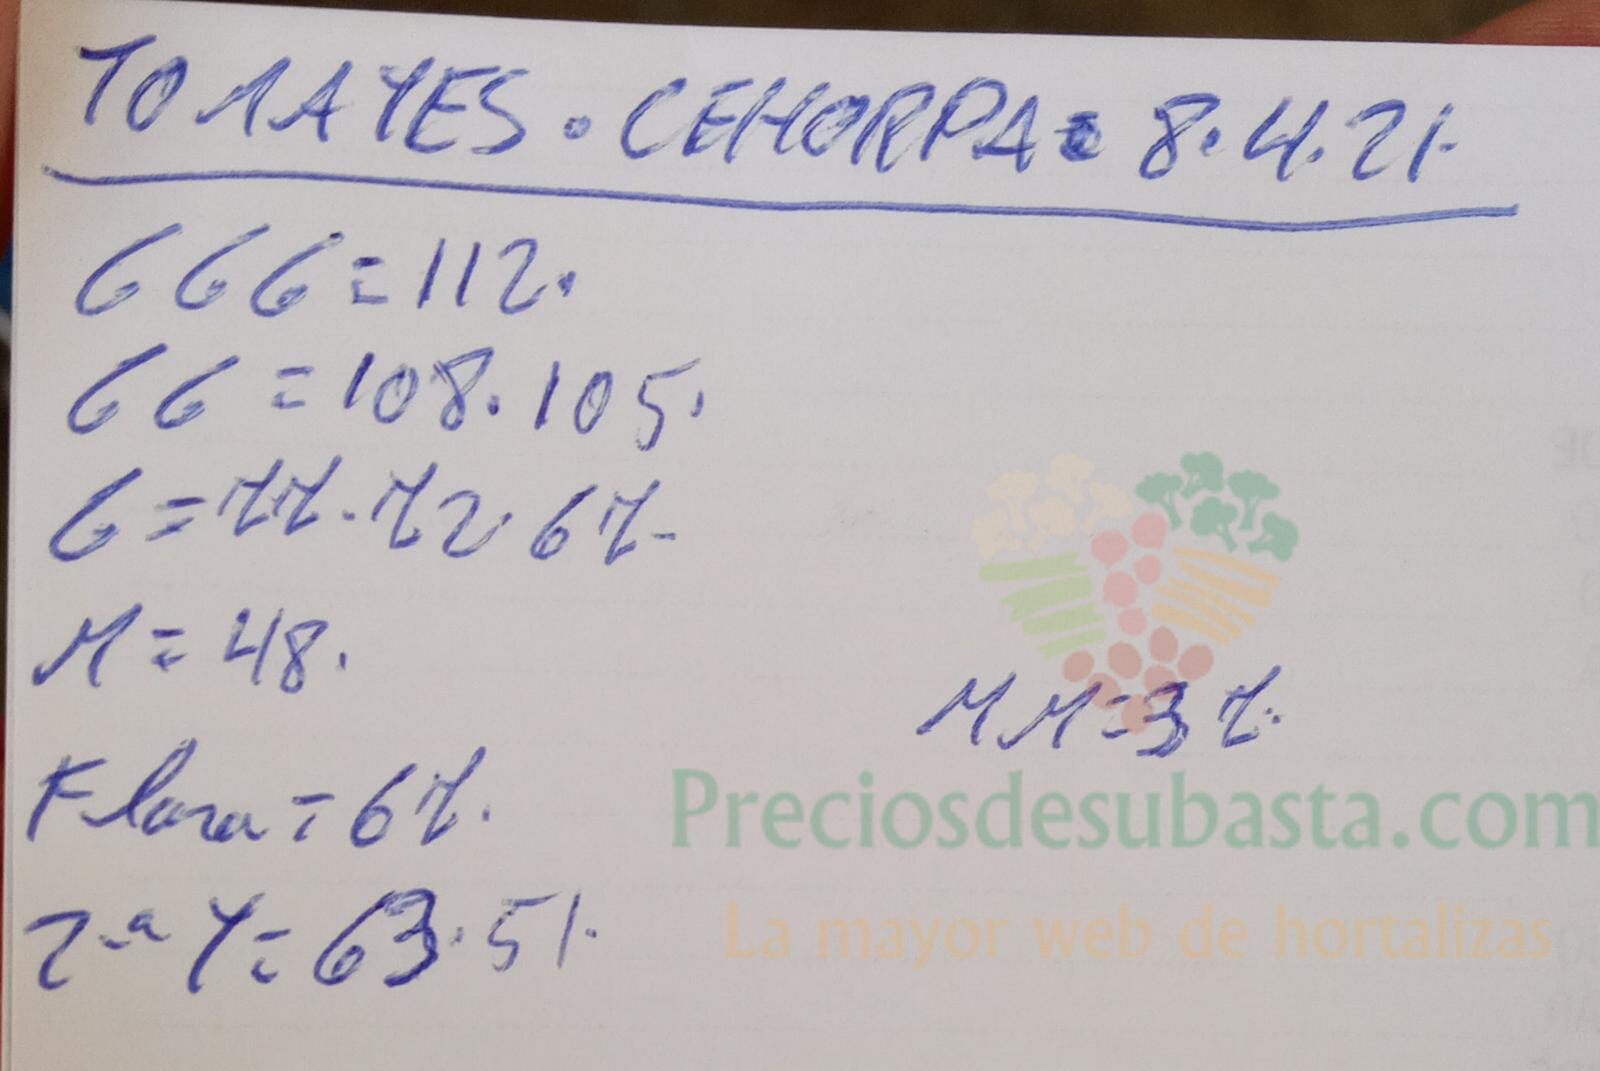 TOMAYES. CEHORPA= 8.4.21.
GGG=112.
GG=108.105.
G=77.72.67.
M=48.
MM=37.
Flora=67.
2ªY=63.51.
Preciosdesubasta.com
La mayor web de hortalizas